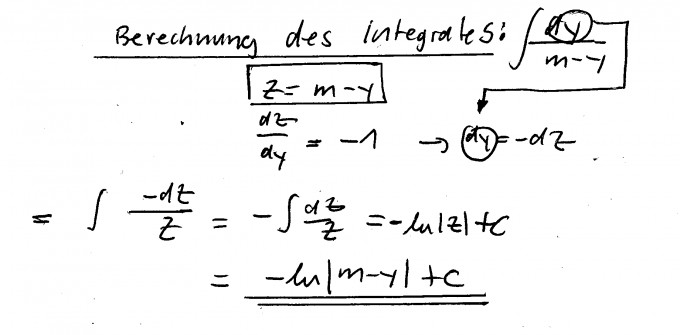 Berechnung des Integrales: ∫ dy/(m-y)
z = m-y
dz/dy = -1 → dy = -dz
= ∫ -dz/z = -∫ dz/z = -ln|z|+C
= -ln|m-y|+C